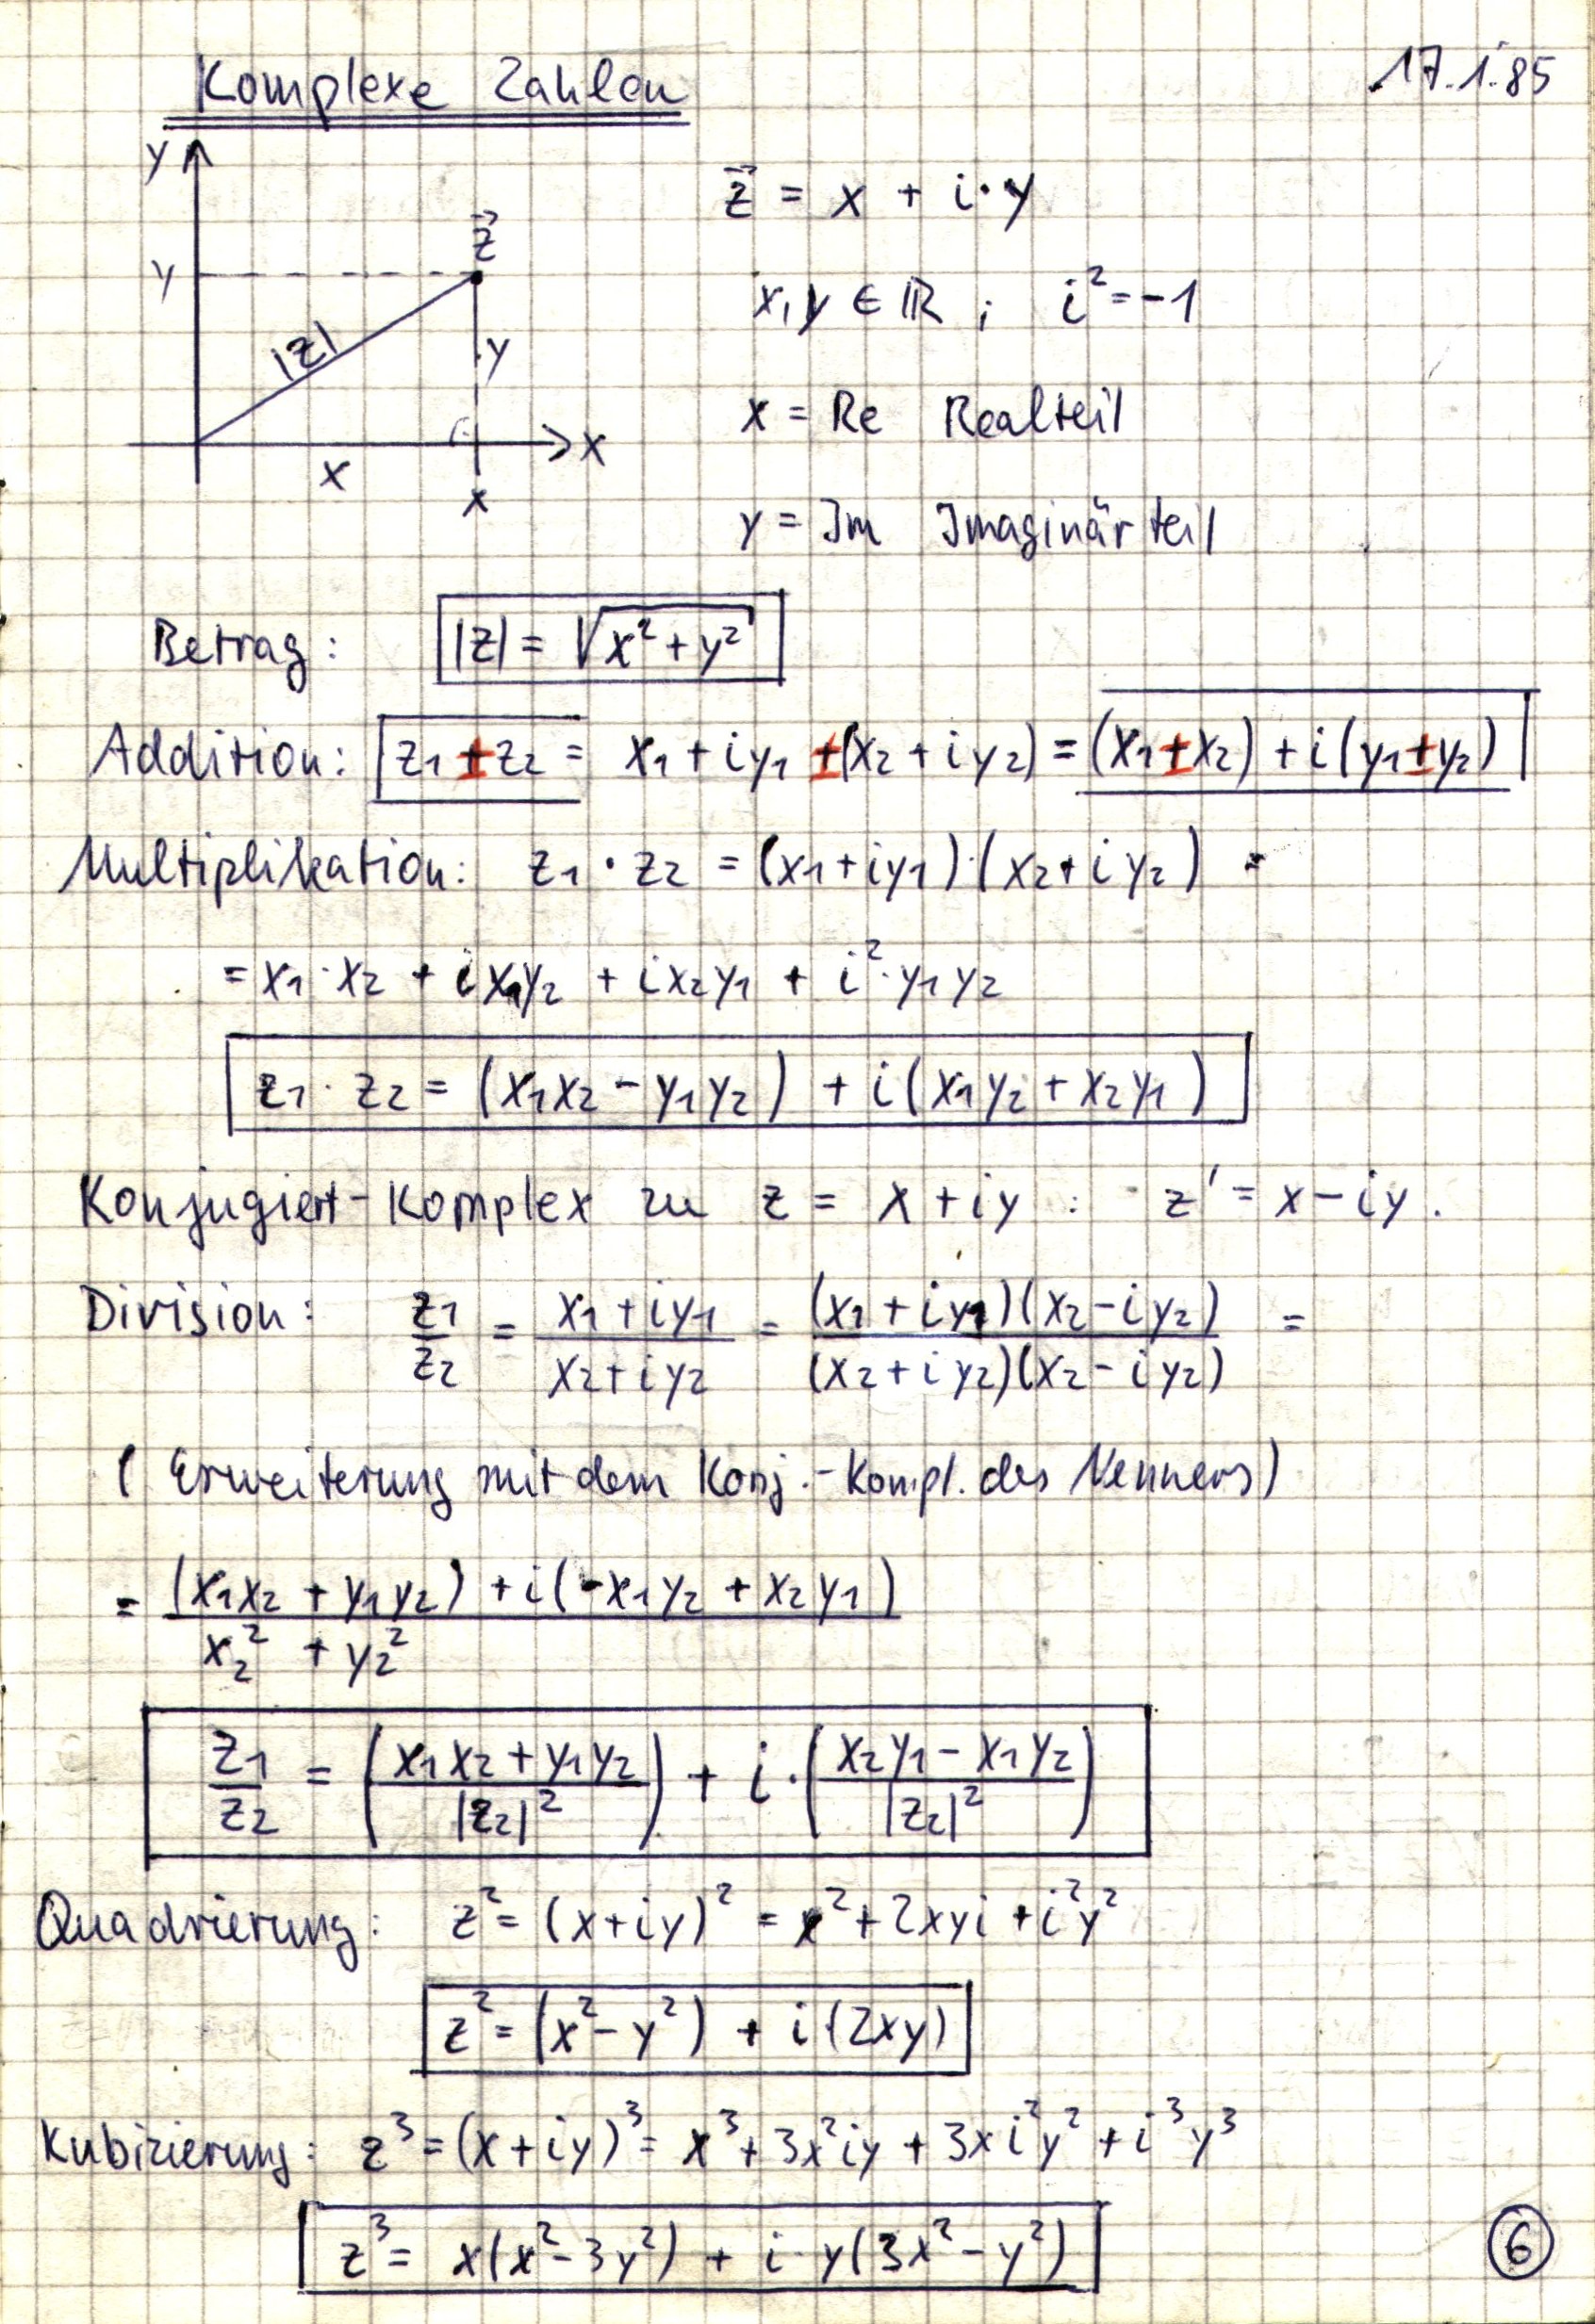 Komplexe Zahlen 17.1.85
y
z⃗
y
|z|
y
x
x
x
z⃗ = x + i·y
x, y ∈ ℝ ; i² = -1
x = Re Realteil
y = Im Imaginärteil
Betrag: |z| = √(x² + y²)
Addition: z₁ ± z₂ = x₁ + iy₁ ± (x₂ + iy₂) = (x₁ ± x₂) + i(y₁ ± y₂)
Multiplikation: z₁ · z₂ = (x₁ + iy₁)·(x₂ + iy₂) =
= x₁·x₂ + ix₁y₂ + ix₂y₁ + i²·y₁y₂
z₁ · z₂ = (x₁x₂ - y₁y₂) + i(x₁y₂ + x₂y₁)
Konjugiert-Komplex zu z = x + iy : z' = x - iy.
Division: z₁/z₂ = (x₁ + iy₁)/(x₂ + iy₂) = (x₁ + iy₁)(x₂ - iy₂)/(x₂ + iy₂)(x₂ - iy₂) =
(Erweiterung mit dem Konj.-Kompl. des Nenners)
= (x₁x₂ + y₁y₂) + i(-x₁y₂ + x₂y₁)
x₂² + y₂²
z₁/z₂ = (x₁x₂ + y₁y₂ / |z₂|²) + i·(x₂y₁ - x₁y₂ / |z₂|²)
Quadrierung: z² = (x + iy)² = x² + 2xyi + i²y²
z² = (x² - y²) + i·(2xy)
Kubizierung: z³ = (x + iy)³ = x³ + 3x²iy + 3xi²y² + i³y³
z³ = x(x² - 3y²) + i·y(3x² - y²)
6